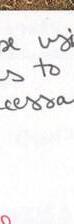 se usi
s to
cessa